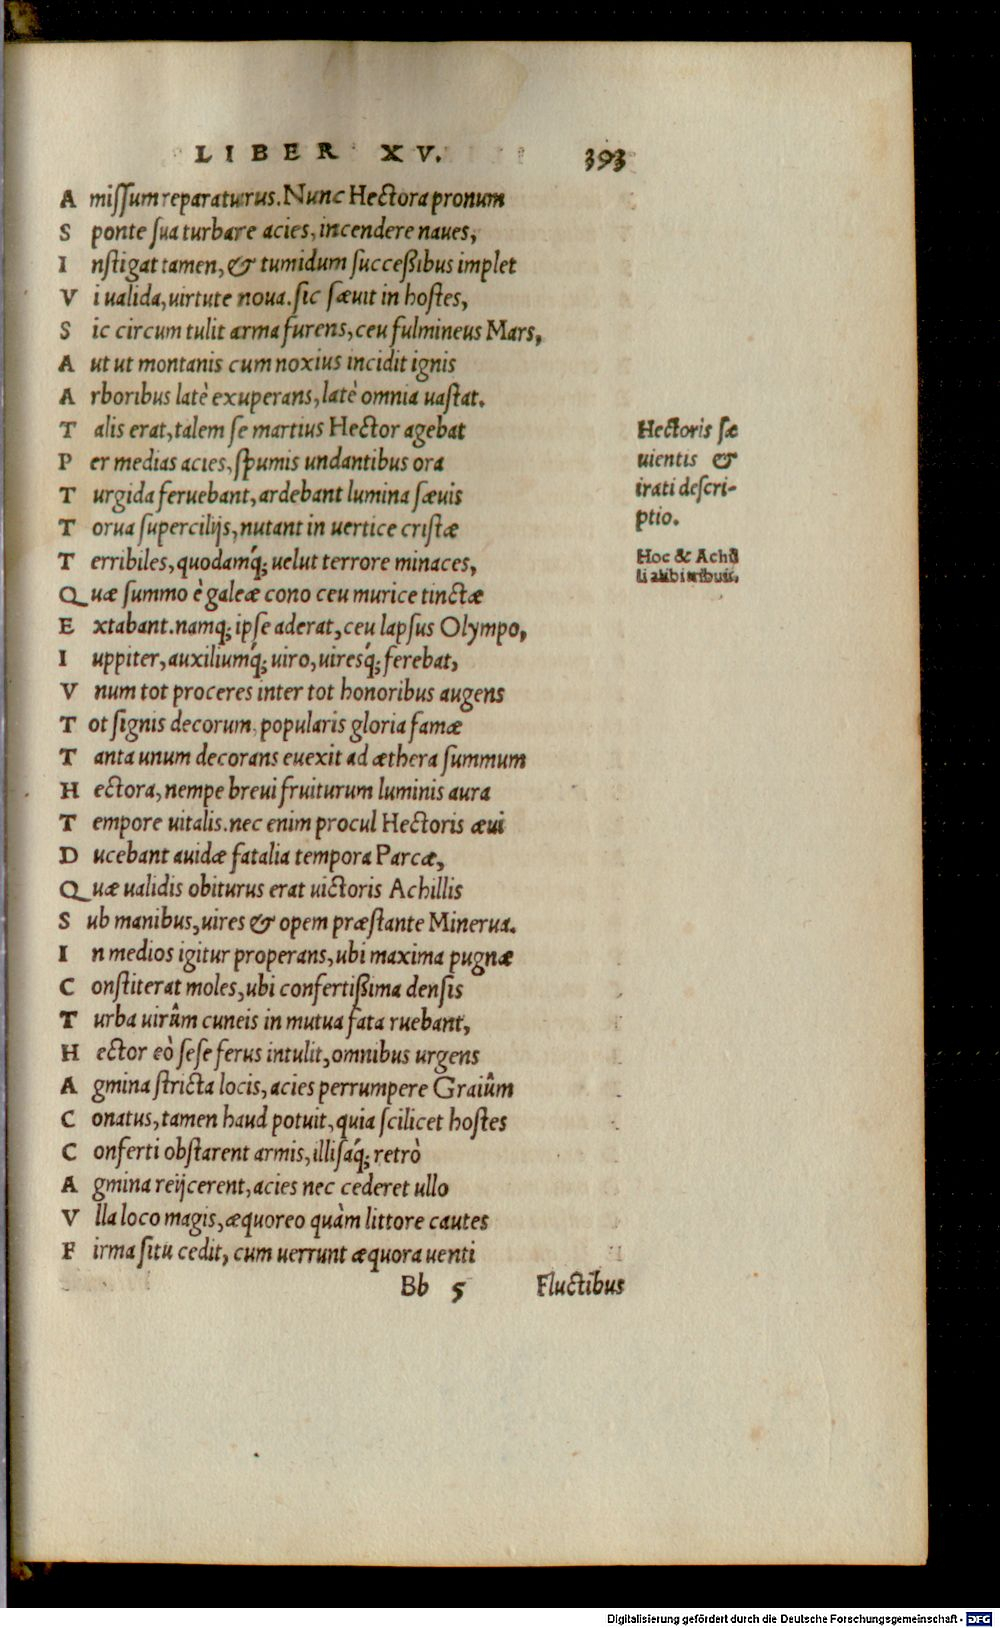 LIBER XV. 393
Amiſſum reparaturus. Nunc Hectora pronum
Sponte ſua turbare acies, incendere naues,
Inſtigat tamen, & tumidum ſucceßibus implet
Vi ualida, uirtute noua. ſic ſæuit in hoſtes,
Sic circum tulit arma furens, ceu fulmineus Mars,
Aut ut montanis cum noxius incidit ignis
Arboribus latè exuperans, latè omnia uaſtat.
Talis erat, talem ſe martius Hector agebat
Per medias acies, ſpumis undantibus ora
Turgida feruebant, ardebant lumina ſæuis
Torua ſupercilijs, nutant in uertice criſtæ
Terribiles, quodamq́; uelut terrore minaces,
Quæ ſummo è galeæ cono ceu murice tinctæ
Extabant. namq; ipſe aderat, ceu lapſus Olympo,
Iuppiter, auxiliumq́; uiro, uiresq́; ferebat,
Vnum tot proceres inter tot honoribus augens
Tot ſignis decorum, popularis gloria famæ
Tanta unum decorans euexit ad æthera ſummum
Hectora, nempe breui fruiturum luminis aura
Tempore uitalis. nec enim procul Hectoris æui
Ducebant auidæ fatalia tempora Parcæ,
Quæ ualidis obiturus erat uictoris Achillis
Sub manibus, uires & opem præſtante Minerua.
In medios igitur properans, ubi maxima pugnæ
Conſtiterat moles, ubi confertißima denſis
Turba uirûm cuneis in mutua fata ruebant,
Hector eò ſeſe ferus intulit, omnibus urgens
Agmina ſtricta locis, acies perrumpere Graiûm
Conatus, tamen haud potuit, quia ſcilicet hoſtes
Conferti obſtarent armis, illiſáq́; retrò
Agmina reijcerent, acies nec cederet ullo
Vlla loco magis, æquoreo quàm littore cautes
Firma ſitu cedit, cum uerrunt æquora uenti
Bb 5 Fluctibus
Hectoris ſæ
uientis &
irati deſcri-
ptio.
Hoc & Achil
li alibi tribuit.
Digitalisierung gefördert durch die Deutsche Forschungsgemeinschaft - DFG